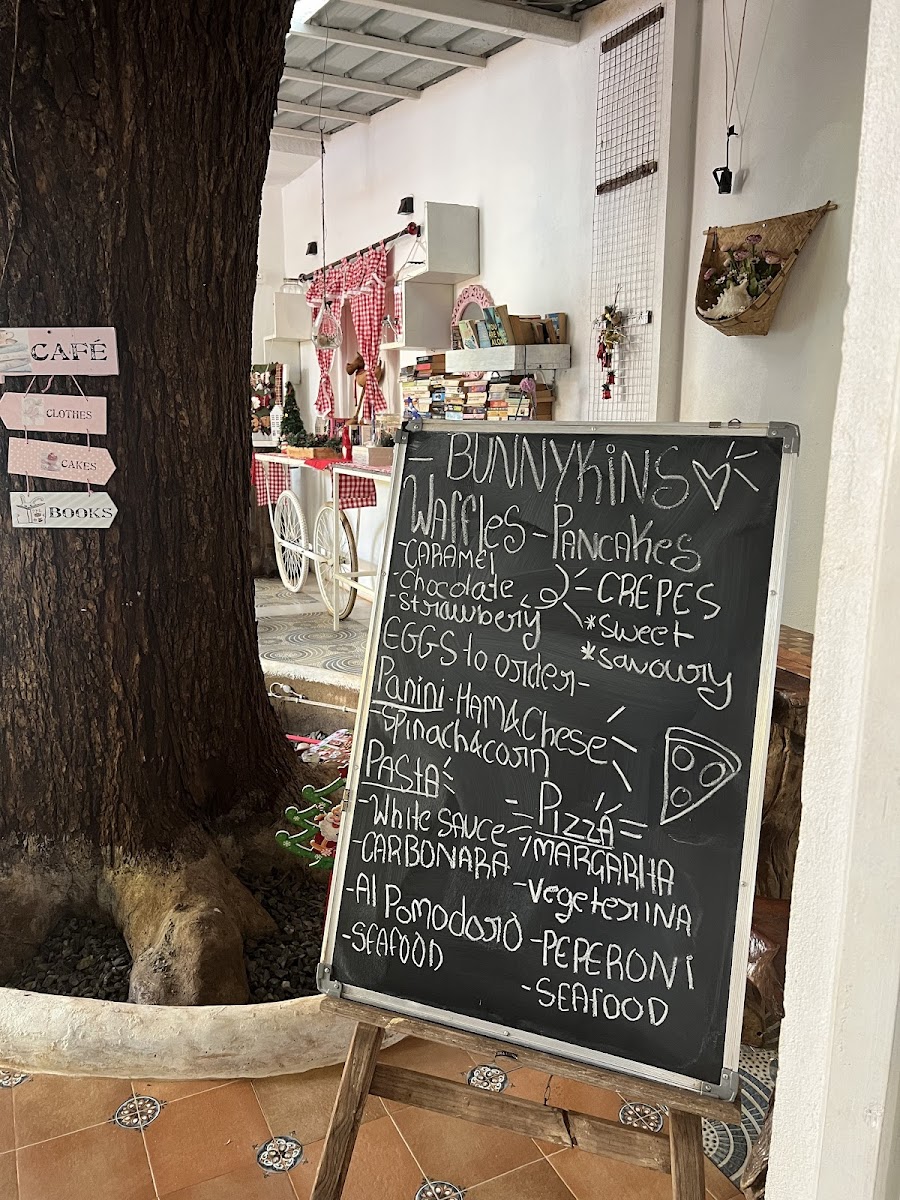 CAFÉ
CLOTHES
CAKES
BOOKS
- BUNNYKINS
Waffles - PANCAKES
- CARAMEl
- Chocolate
- Strawbery
- CREPES
*sweet
*savoury
EGGS to order -
Panini - HAM&Chese
- Spinach&corn
PASTA
- White SAUCE
- CARBONARA
- Al Pomodoro
- SEAFOOD
= Pizza =
- MARGARITA
- VegeterINA
- PEPERONI
- SEAFOOD